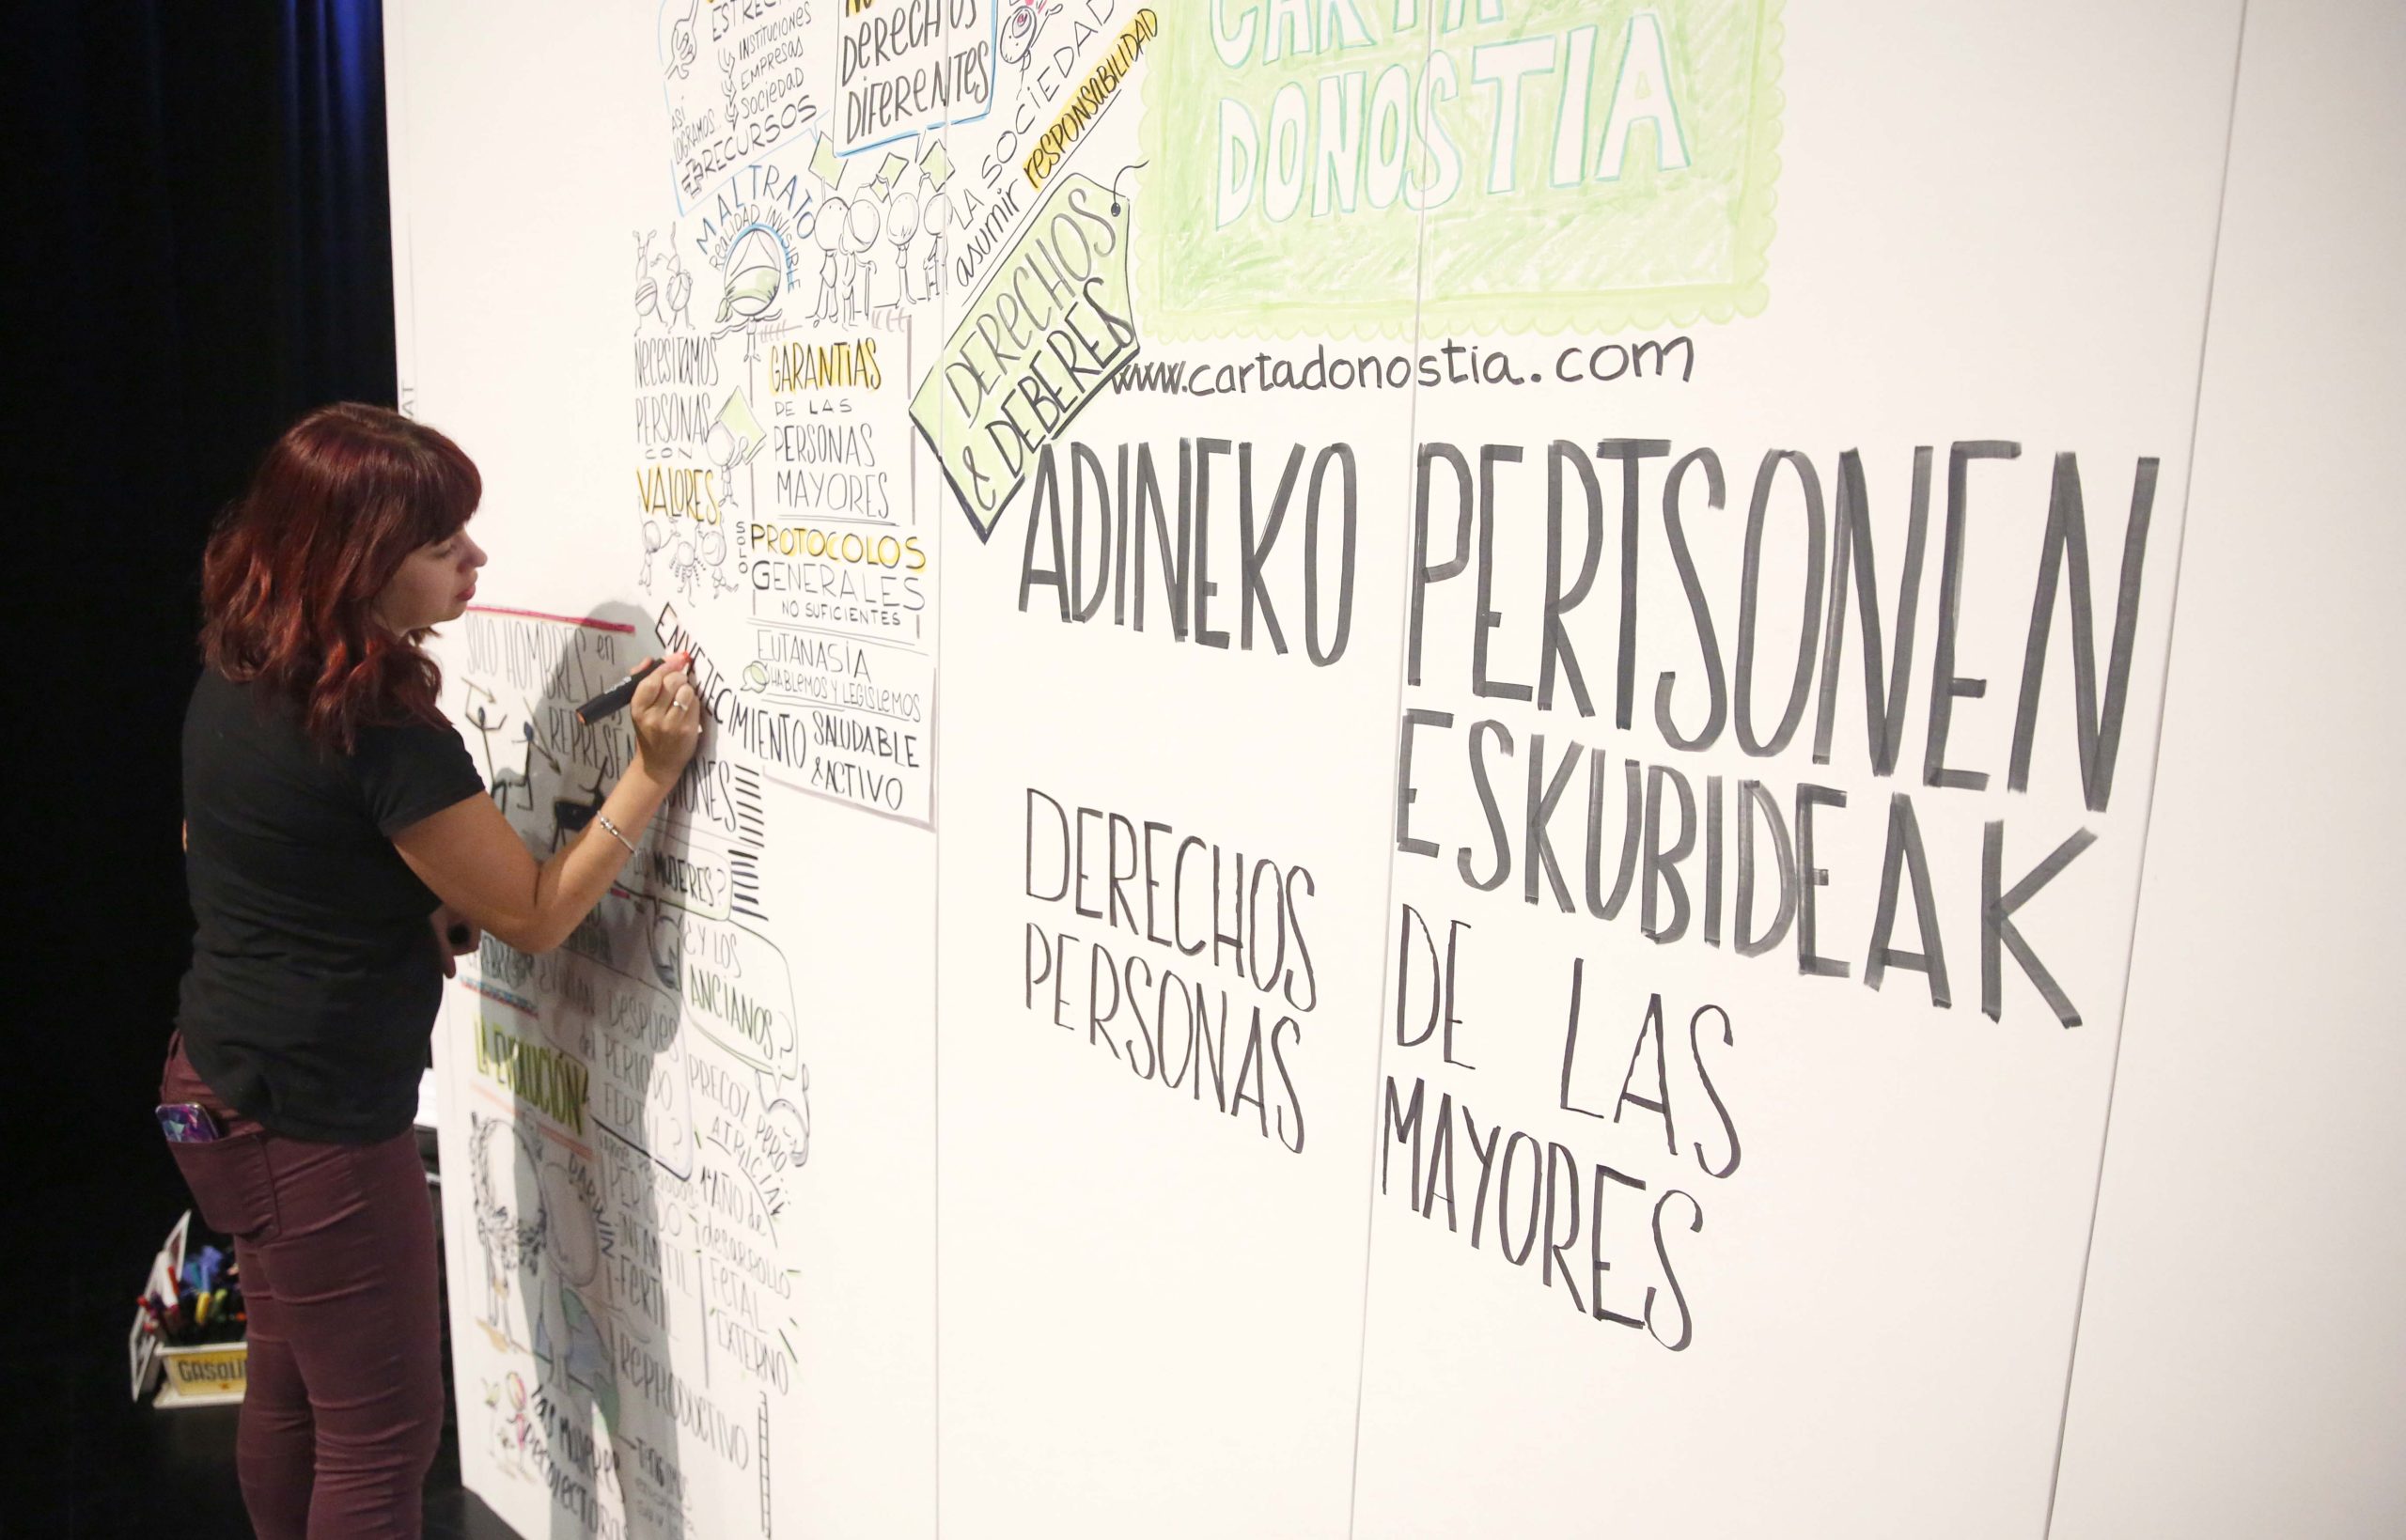 INSTITUCIONES
EMPRESAS
SOCIEDAD
ASÍ
LOGRAMOS
RECURSOS
DERECHOS
DIFERENTES
LA SOCIEDAD
asumir responsabilidad
MALTRATO
REALIDAD INVISIBLE
DERECHOS
& DEBERES
CARTA
DONOSTIA
www.cartadonostia.com
NECESITAMOS
PERSONAS
CON
VALORES
GARANTIAS
DE LAS
PERSONAS
MAYORES
SOLO
PROTOCOLOS
GENERALES
NO SUFICIENTES
EUTANASIA
HABLEMOS Y LEGISLEMOS
ENVEJECIMIENTO SALUDABLE
& ACTIVO
ADINEKO PERTSONEN
ESKUBIDEAK
DERECHOS DE LAS
PERSONAS MAYORES
SOLO HOMBRES en
MUJERES?
¿Y LOS
ANCIANOS?
DESPUÉS
del
PERIODO
FERTIL?
PRECOZ PERO
1er AÑO de
desarrollo
FETAL
EXTERNO
DARWIN
INFANTIL
-FERTIL
REPRODUCTIVO
las mujeres
GASOLI